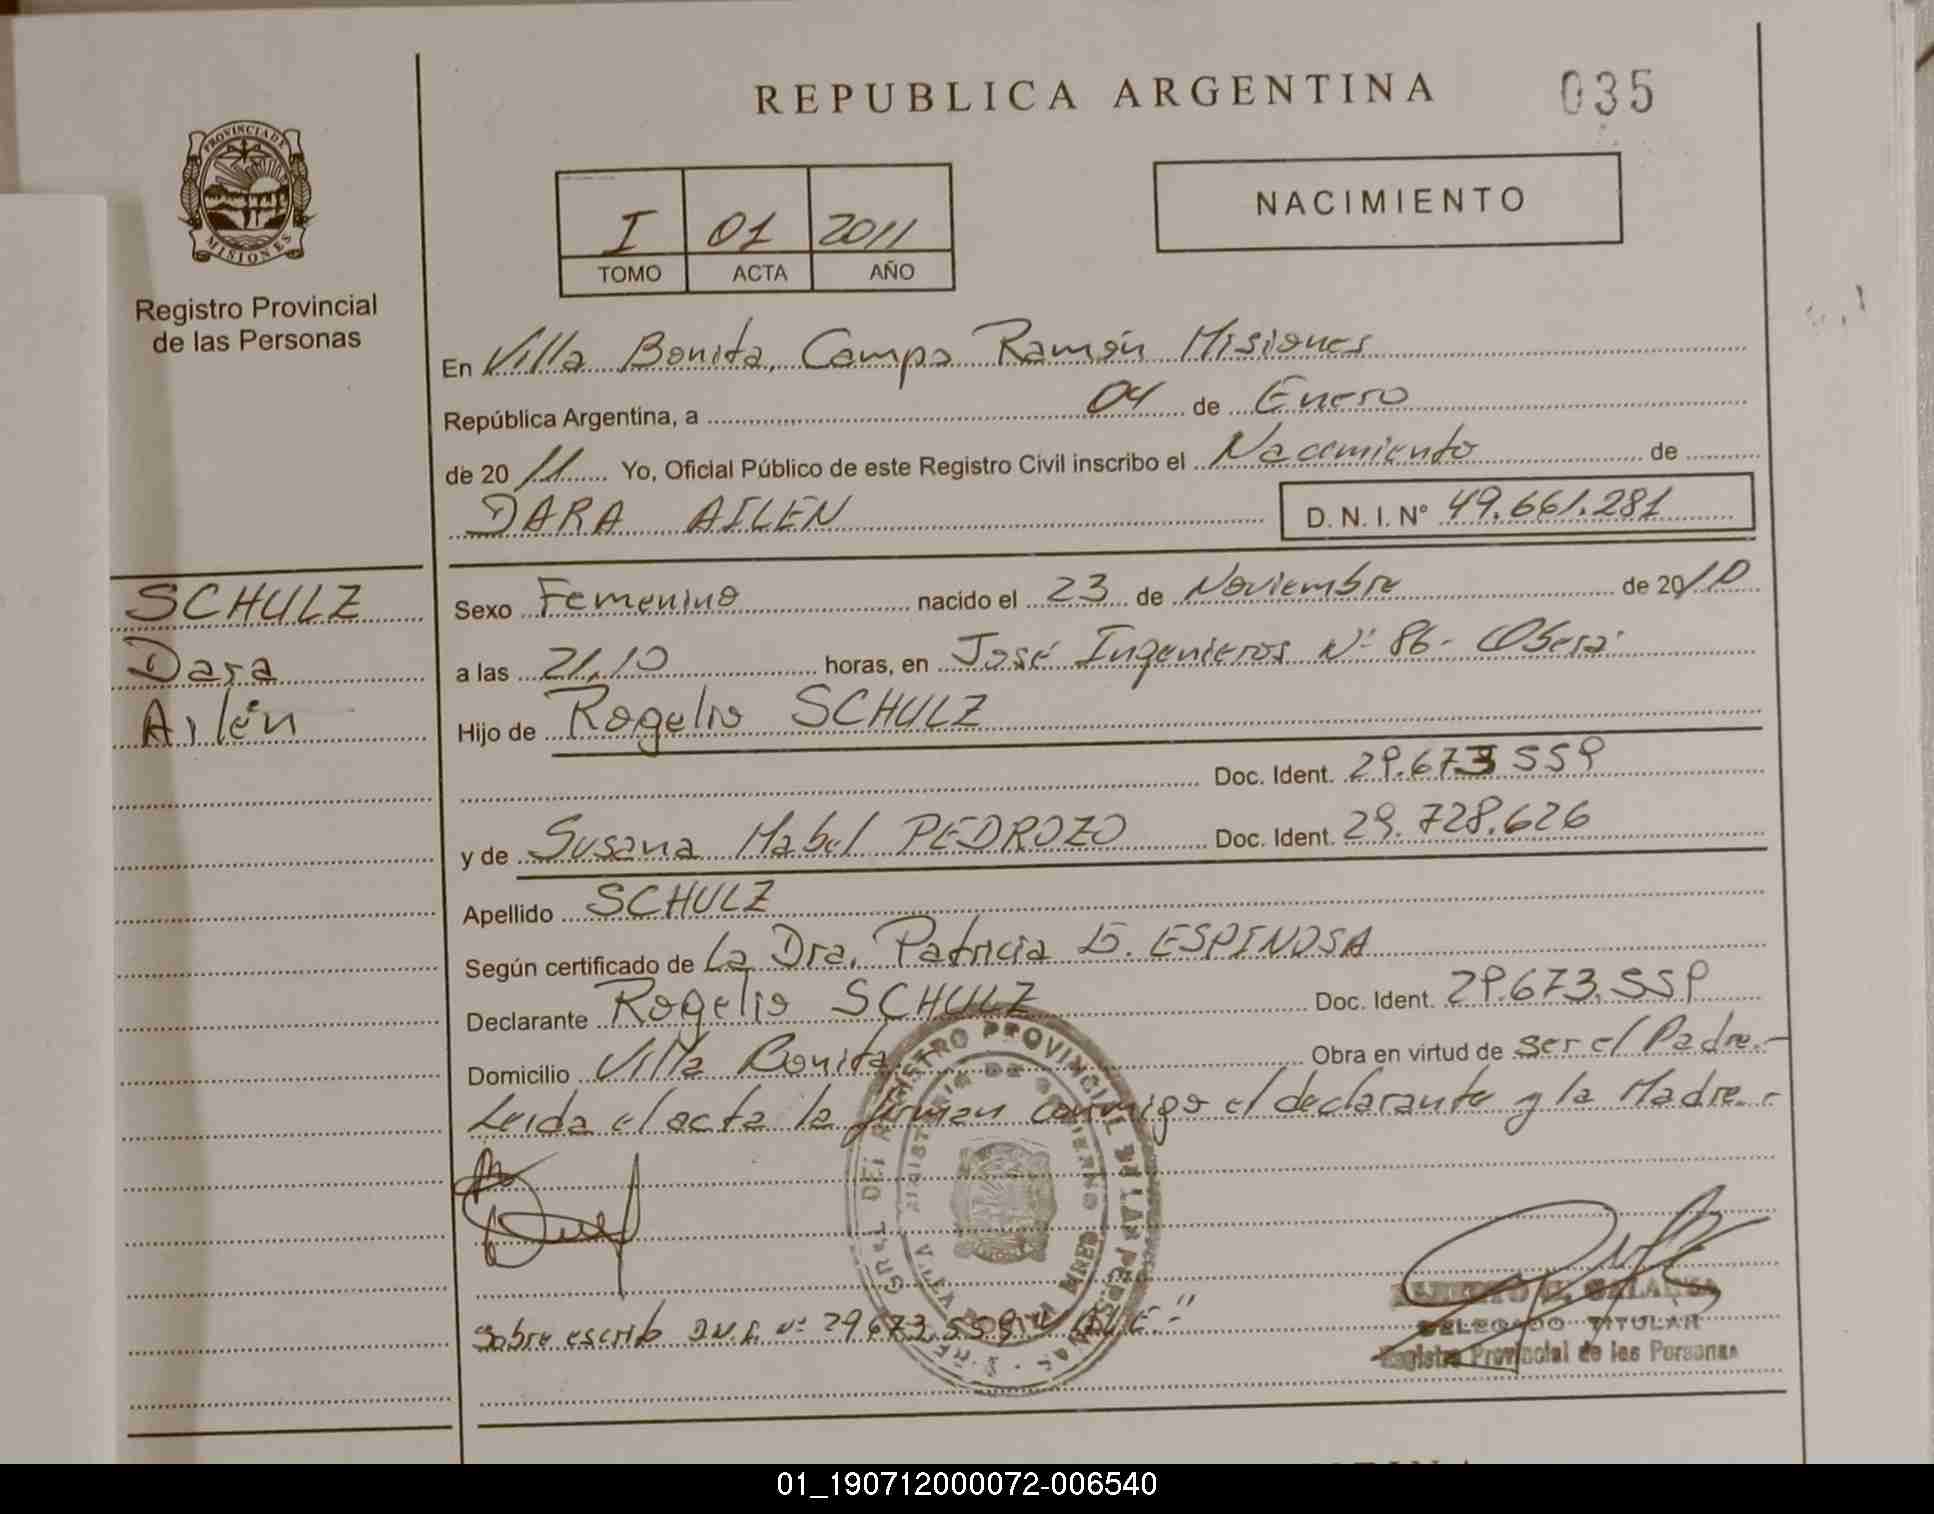 REPUBLICA ARGENTINA
035
PROVINCIA DE
MISIONES
Registro Provincial
de las Personas
I 01 2011
TOMO ACTA AÑO
NACIMIENTO
En Villa Bonita, Campo Ramón Misiones
República Argentina, a 04 de Enero
de 2011 Yo, Oficial Público de este Registro Civil inscribo el Nacimiento de
DARA AILEN D. N. I. Nº 49.661.281
SCHULZ
Dara
Ailén
Sexo Femenino nacido el 23 de Noviembre de 2010
a las 21,10 horas, en José Ingenieros Nº 86- Oberá
Hijo de Rogelio SCHULZ
Doc. Ident. 29.673 559
y de Susana Mabel PEDROZO Doc. Ident. 29.728.626
Apellido SCHULZ
Según certificado de La Dra. Patricia E. ESPINOSA
Declarante Rogelio SCHULZ Doc. Ident. 29.673.559
Domicilio Villa Bonita Obra en virtud de ser el Padre.-
Leida el acta la firman conmigo el declarante y la Madre.-
Sobre escrito D.N.I. Nº 29673.559 VALE.-"
DELEGADO TITULAR
Registro Provincial de las Personas
01_190712000072-006540